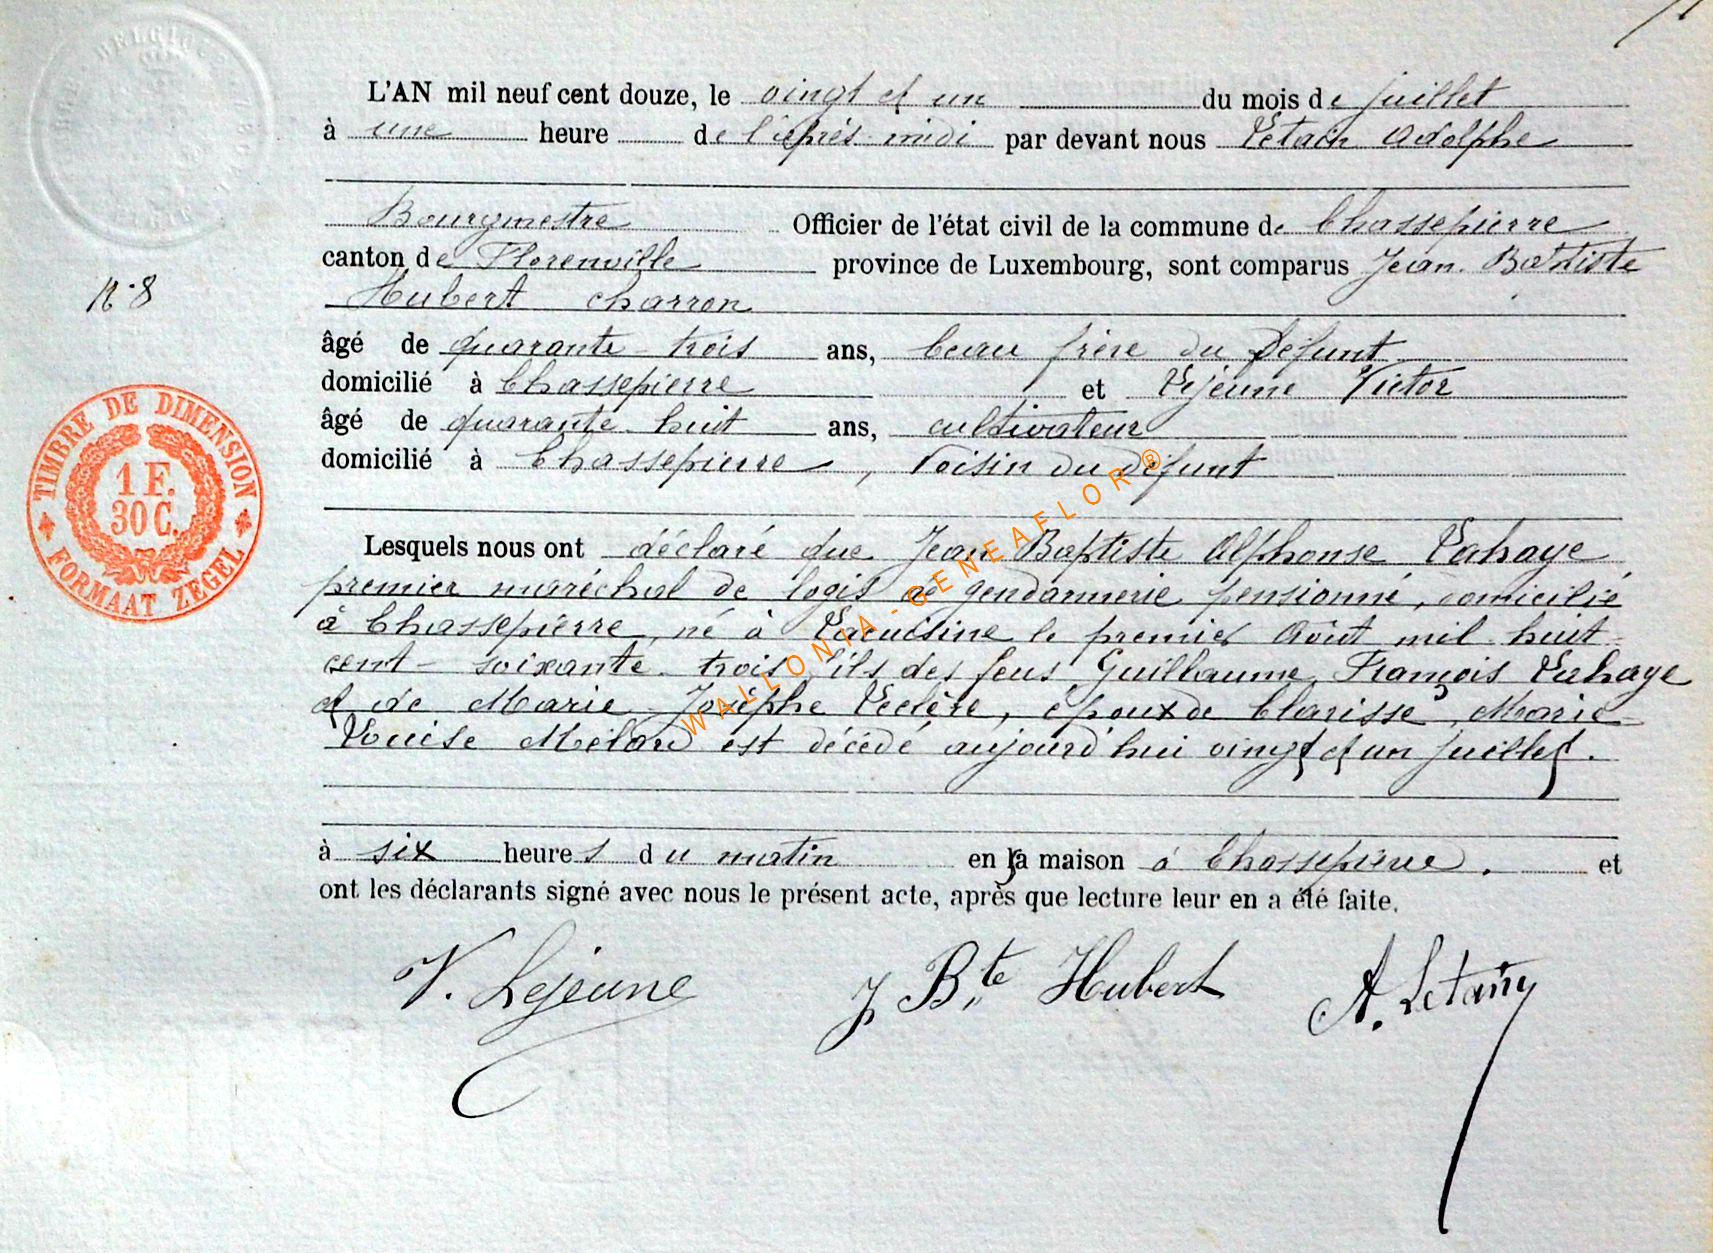 L'AN mil neuf cent douze, le vingt et un du mois de juillet
à une heure de l'après midi par devant nous Létain Adolphe
Bourgmestre Officier de l'état civil de la commune de Chassepierre
canton de Florenville province de Luxembourg, sont comparus Jean Baptiste
N°8
Hubert charron
âgé de quarante-trois ans, beau frère du défunt
domicilié à Chassepierre et Lejeune Victor
âgé de quarante-huit ans, cultivateur
domicilié à Chassepierre, voisin du défunt
TIMBRE DE DIMENSION
1 F.
30 C.
FORMAAT ZEGEL
Lesquels nous ont déclaré que Jean Baptiste Alphonse Lahaye
premier maréchal de logis de gendarmerie pensionné, domicilié
à Chassepierre, né à Lacuisine le premier Août mil huit
cent-soixante-trois, fils des feus Guillaume, François Lahaye
et de Marie Josèphe Leclère, époux de Clarisse, Marie-
Louise Mélard est décédé aujourd'hui vingt et un juillet.
à six heures du matin en sa maison à Chassepierre. et
ont les déclarants signé avec nous le présent acte, après que lecture leur en a été faite.
WALLONIA-GENEAFLOR®
V. Lejeune J Bte Hubert A. Létain